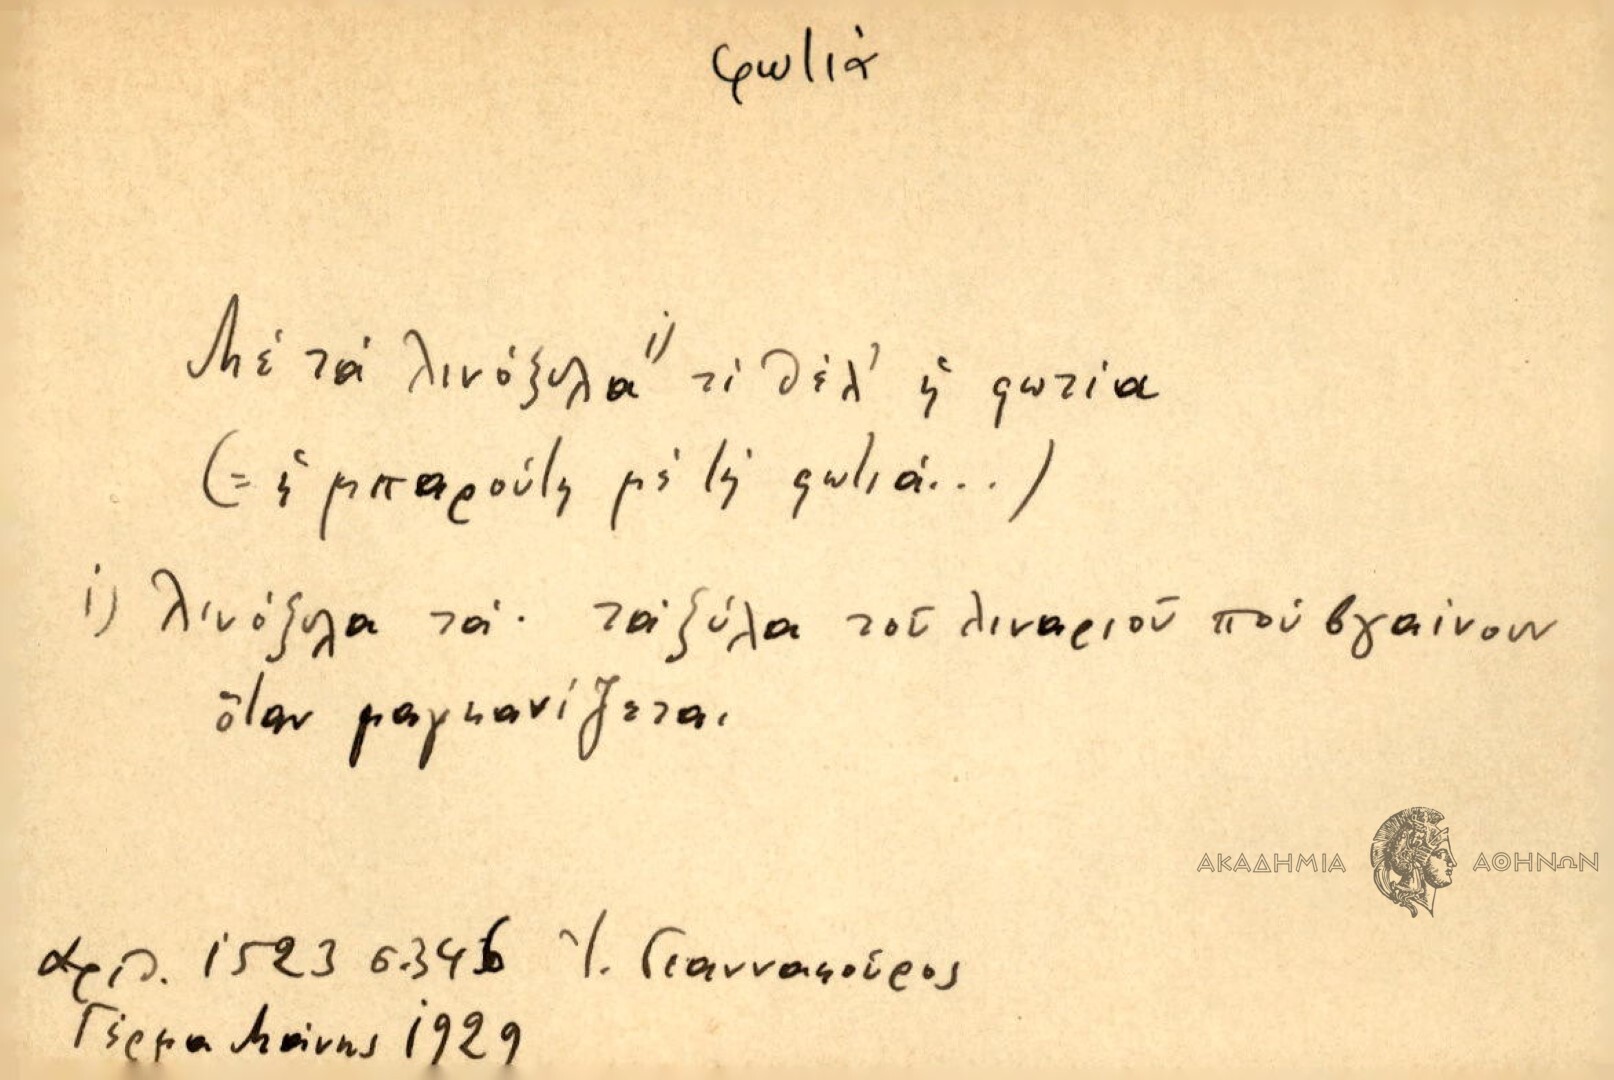 φωτιὰ
Μὲ τὰ λινόξυλα¹⁾ τί θέλ' ἡ φωτία
(= ἡ μπαρούτη μὲ τὴ φωτιά...)
1) λινόξυλα τά· τὰ ξύλα τοῦ λιναριοῦ ποὺ βγαίνουν
ὅταν μαγκανίζεται
ΑΚΑΔΗΜΙΑ ΑΘΗΝΩΝ
Ἀριθ. 1523 σ. 346 Ἰ. Γιαννακούρος
Γέρμα Μάνης 1929